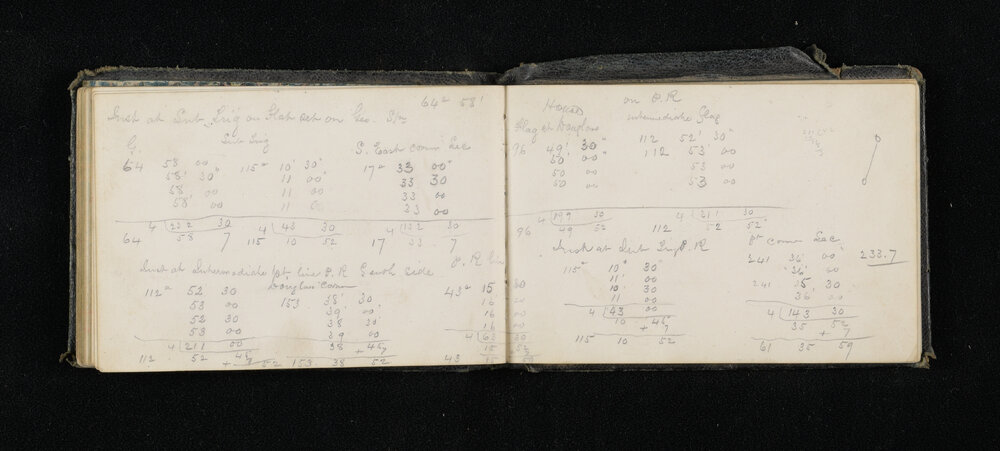 64° 58'
Inst at Int Trig on Flat out on Geo.
Int Trig S. East corner Sec
64 58 00 115° 10' 30" 17° 33 00"
58' 30" 11 00 33 30
58' 00 11 00 33 00
58' 00 11 0 33 00
4 232 30 4 43 30 4 132 30
64 58 7 115 10 52 17 33 7
Inst at Intermediate pt line P.R & South Side
Douglas Corner P.R line
112° 52 30 153 38' 30 43° 15 30
53 00 39' 00 16 00
52 30 38 30 16 00
53 00 39 00 16 00
4 211 00 38 45 4 63 30
+ 7 15 52
112 52 45
+ 7 52 153 38 52 43 15 59
House on P.R
Flag at Douglas intermediate Flag
96 49' 30 112 52' 30"
50 00" 112 53' 00
50 00 53 00
50 00 53 00
4 199 30 4 211 30
96 49 52 112 52 52
Inst at Int Trig P.R
pt corner Sec
115° 10' 30" 241 36' 00 233.7
11' 00 36' 00
10' 30 241 35 30
11 00 36 00
4 43 00 4 143 30
10 45 35 52
+ 7 + 7
115 10 52 61 35 59